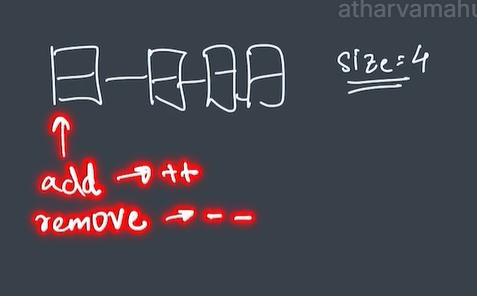 atharvamahu
size = 4
add → ++
remove → - -